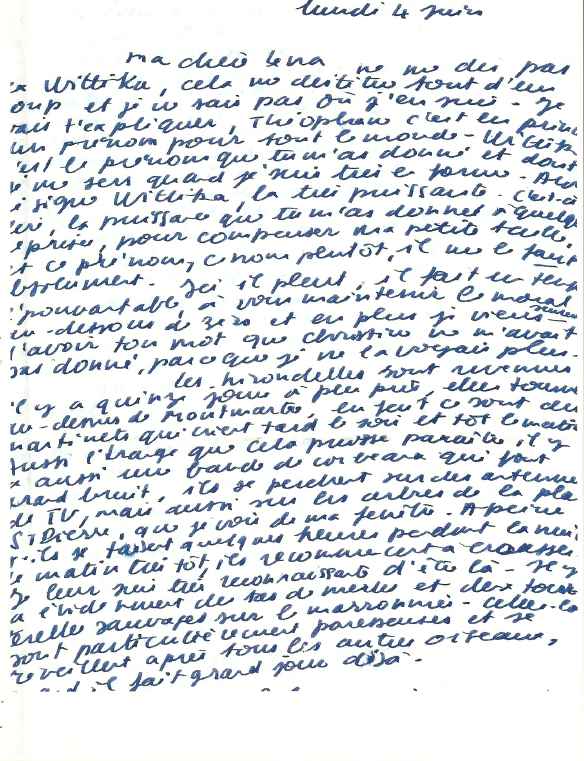 lundi 4 juin
ma chère Lena ne me dis pas
Wittika, cela me destitue tout d'un
oup et je ne sais pas où j'en suis - je
ais t'expliquer, Théophano c'est en princ
un prénom pour tout le monde - Wittik
c'est le prénom que tu m'as donné et dont
je me sers quand je suis très en forme. Alor
je signe Wittika, la très puissante. C'est-à
ire, la puissance que tu m'as donnée à quelqu
eprises, pour compenser ma petite taille,
et ce prénom, ce nom plutôt, il me le faut
bsolument. Ici il pleut, il fait un temps
épouvantable, à vous maintenir le moral
au-dessous de zéro et en plus je viens seulement
d'avoir ton mot que Christine ne m'avait
pas donné, parce que je ne la voyais plus.
Les hirondelles sont revenues
il y a quinze jours à peu près, elles tourne
au-dessus de Montmartre, en fait ce sont des
martinets qui crient tard le soir et tôt le matin
aussi étrange que cela puisse paraître, il y
a aussi une bande de corbeaux qui font
grand bruit, ils se perchent sur des antennes
de TV, mais aussi sur les arbres de la pla
St Pierre, que je vois de ma fenêtre. A peine
s'ils se taisent quelques heures pendant la nuit
le matin très tôt, ils recommencent à croasser
je leur suis très reconnaissante d'être là - Il y
a évidemment des tas de merles et deux tourte
erelles sauvages sur le marronnier - celles-là
sont particulièrement paresseuses et se
réveillent après tous les autres oiseaux,
quand il fait grand jour déjà.